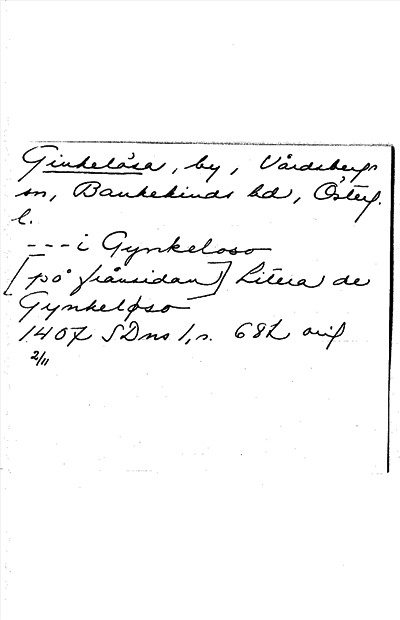 Ginkelösa, by, Vårdsbergs
sn, Bankekinds hd, Österg.
l.
--- i Gynkeloso
[på frånsidan] Litera de
Gynkeløso
1407 SDns 1, s. 682 orig
2/11